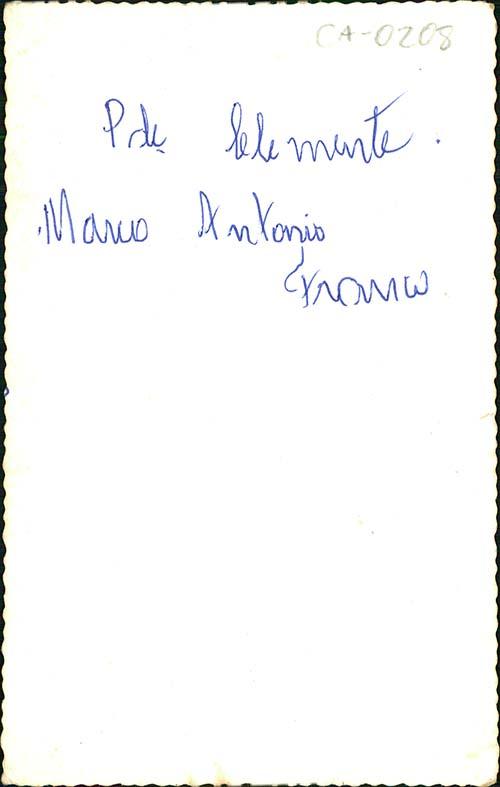 CA-0208
Pde Clemente.
Marco Antonio
Franco